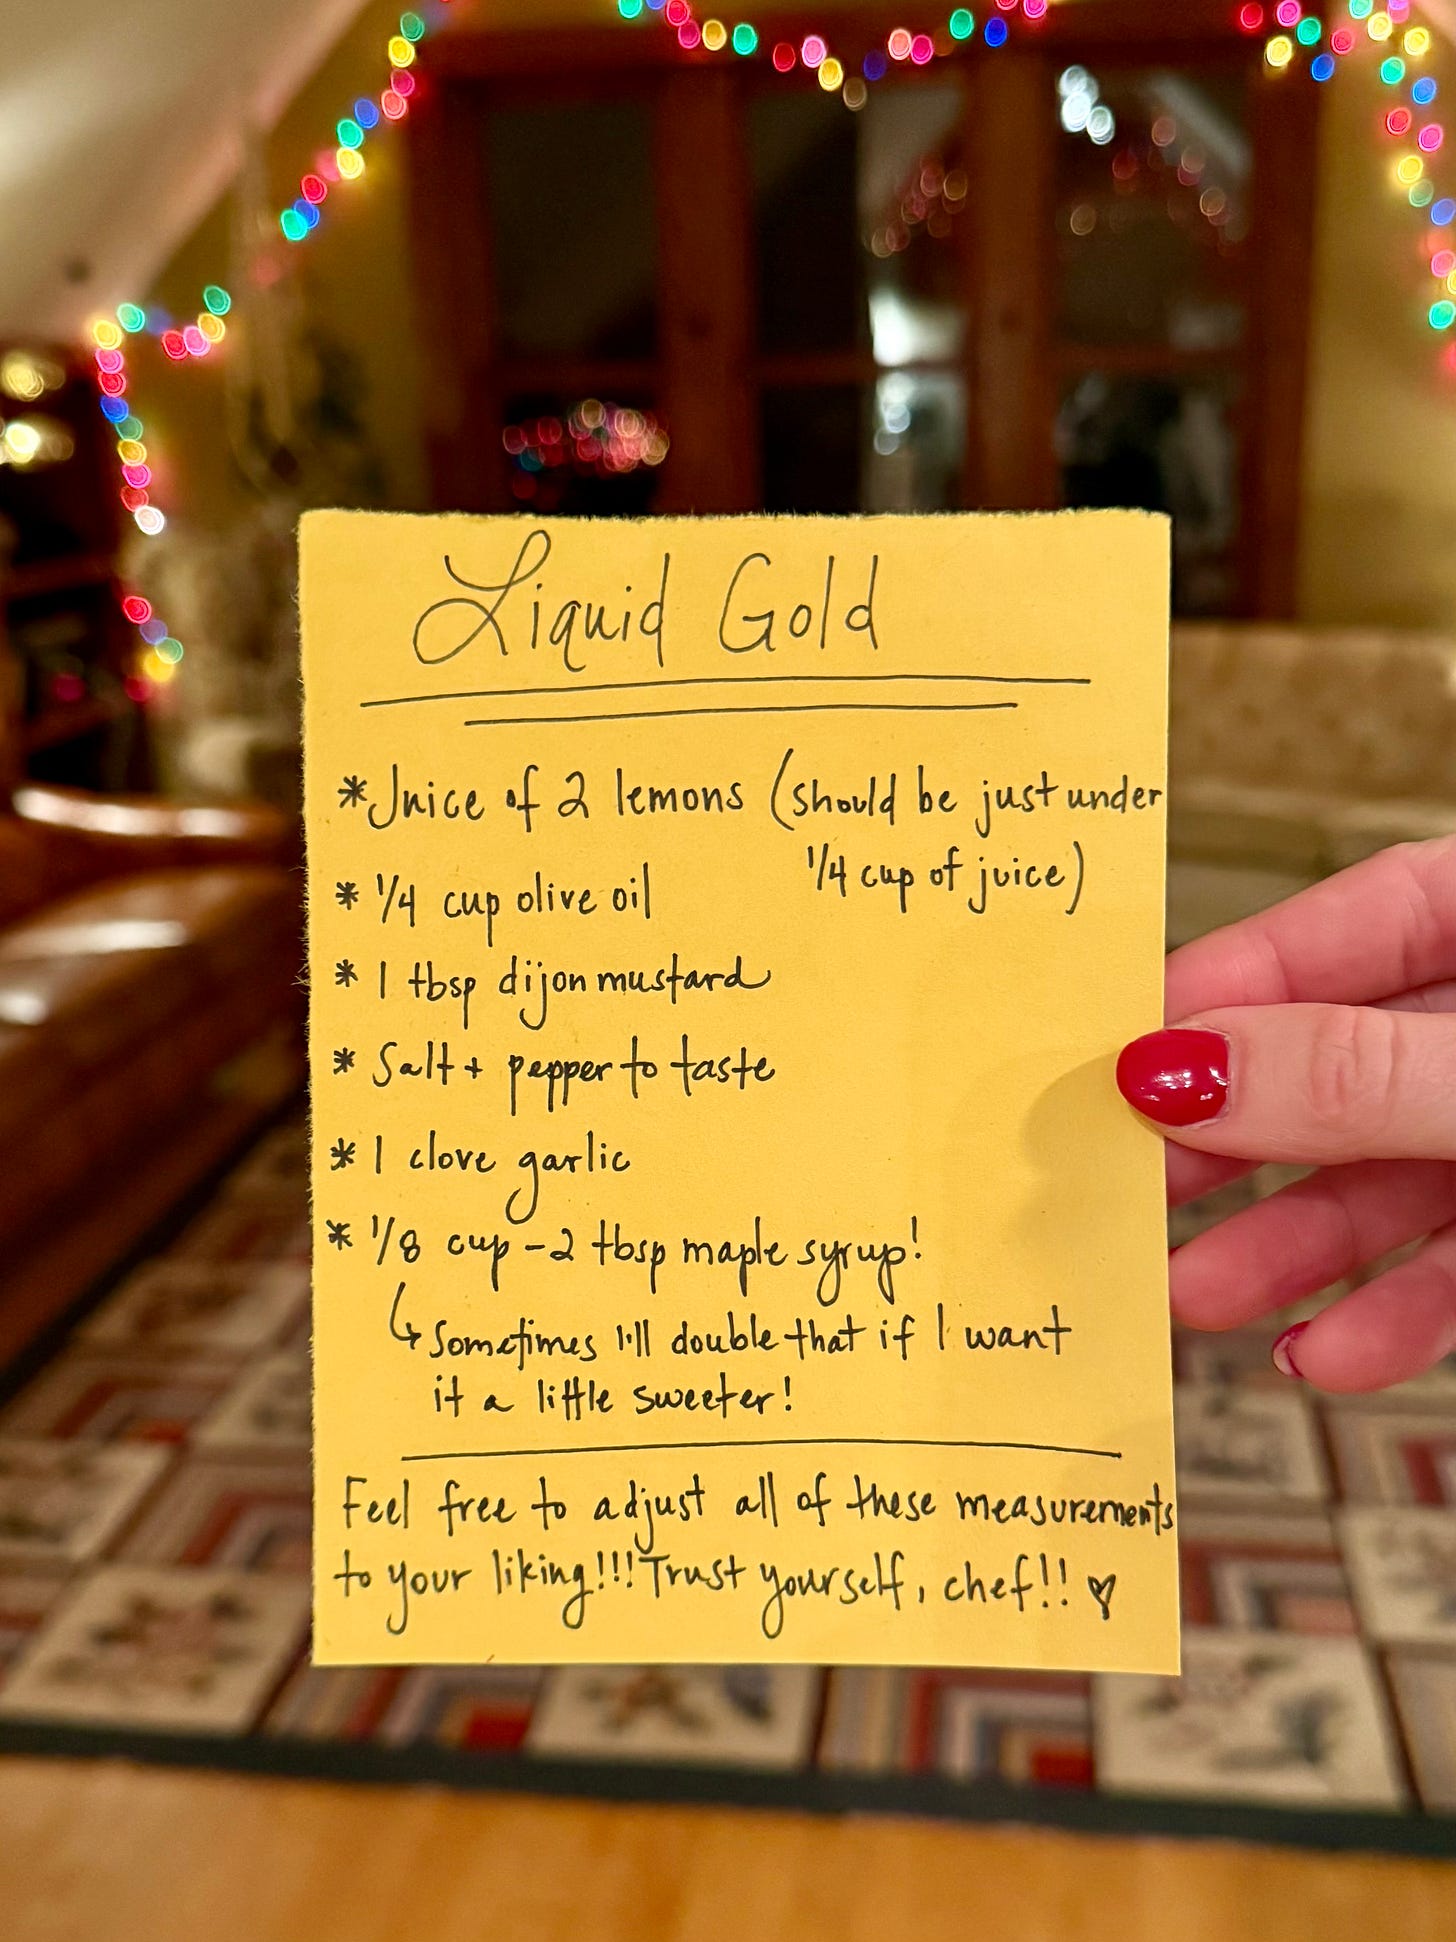 Liquid Gold
* Juice of 2 lemons (should be just under
1/4 cup of juice)
* 1/4 cup olive oil
* 1 tbsp dijon mustard
* Salt + pepper to taste
* 1 clove garlic
* 1/8 cup - 2 tbsp maple syrup!
↳ Sometimes I'll double that if I want
it a little sweeter!
Feel free to adjust all of these measurements
to your liking!!! Trust yourself, chef!! ♥